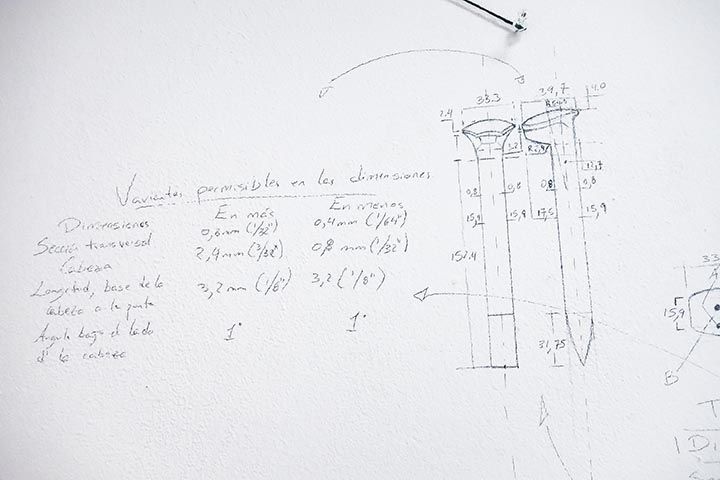 Variantes permisibles en las dimensiones
Dimensiones En más En menos
Sección transversal 0,8mm (1/32") 0,4mm (1/64")
Cabeza 2,4mm (3/32") 0,8 mm (1/32")
Longitud, base de la cabeza a la punta 3,2mm (1/8") 3,2 (1/8")
Angulo bajo el lado d' la cabeza 1° 1°
33.3
2.4
0,8
0,8
15,9
15,9
152.4
39,7
4.0
12,7
0,8
0,8
17,5
15,9
31,75
33
15,9
A
B
T
1 Di